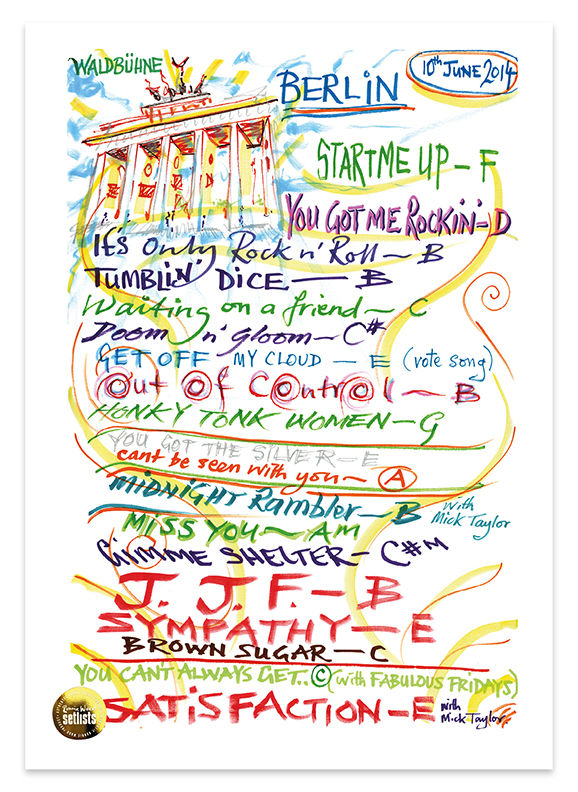 WALDBÜHNE
BERLIN
10th JUNE 2014
START ME UP – F
YOU GOT ME ROCKIN' – D
IT'S only Rock n' Roll – B
TUMBLIN DICE — B
Waiting on a friend – C
Doom n' gloom – C#
GET OFF MY CLOUD – E (vote song)
Out Of Control – B
HONKY TONK WOMEN – G
YOU GOT THE SILVER – E
cant be seen with you – A
MIDNIGHT Rambler – B with Mick Taylor
MISS YOU – AM
GIMME SHELTER – C#M
J. J. F. – B
SYMPATHY – E
BROWN SUGAR – C
YOU CANT ALWAYS GET.. C (with FABULOUS FRIDAYS)
SATISFACTION – E with Mick Taylor
Ronnie Wood
setlists